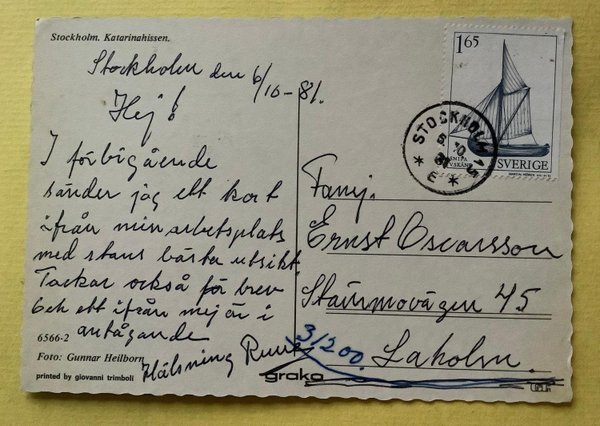 Stockholm. Katarinahissen.
Stockholm den 6/10-81.
Hej!
I förbigående
sänder jag ett kort
ifrån min arbetsplats
med stans bästa utsikt.
Tackar också för brev
och ett ifrån mej är i
antågande
Hälsning Ruut
6566-2
Foto: Gunnar Heilborn
printed by giovanni trimboli
grako
165
SVERIGE
STOCKHOLM 15
6. 10
81
* E *
Famj.
Ernst Oscarsson
45
31200
Laholm.